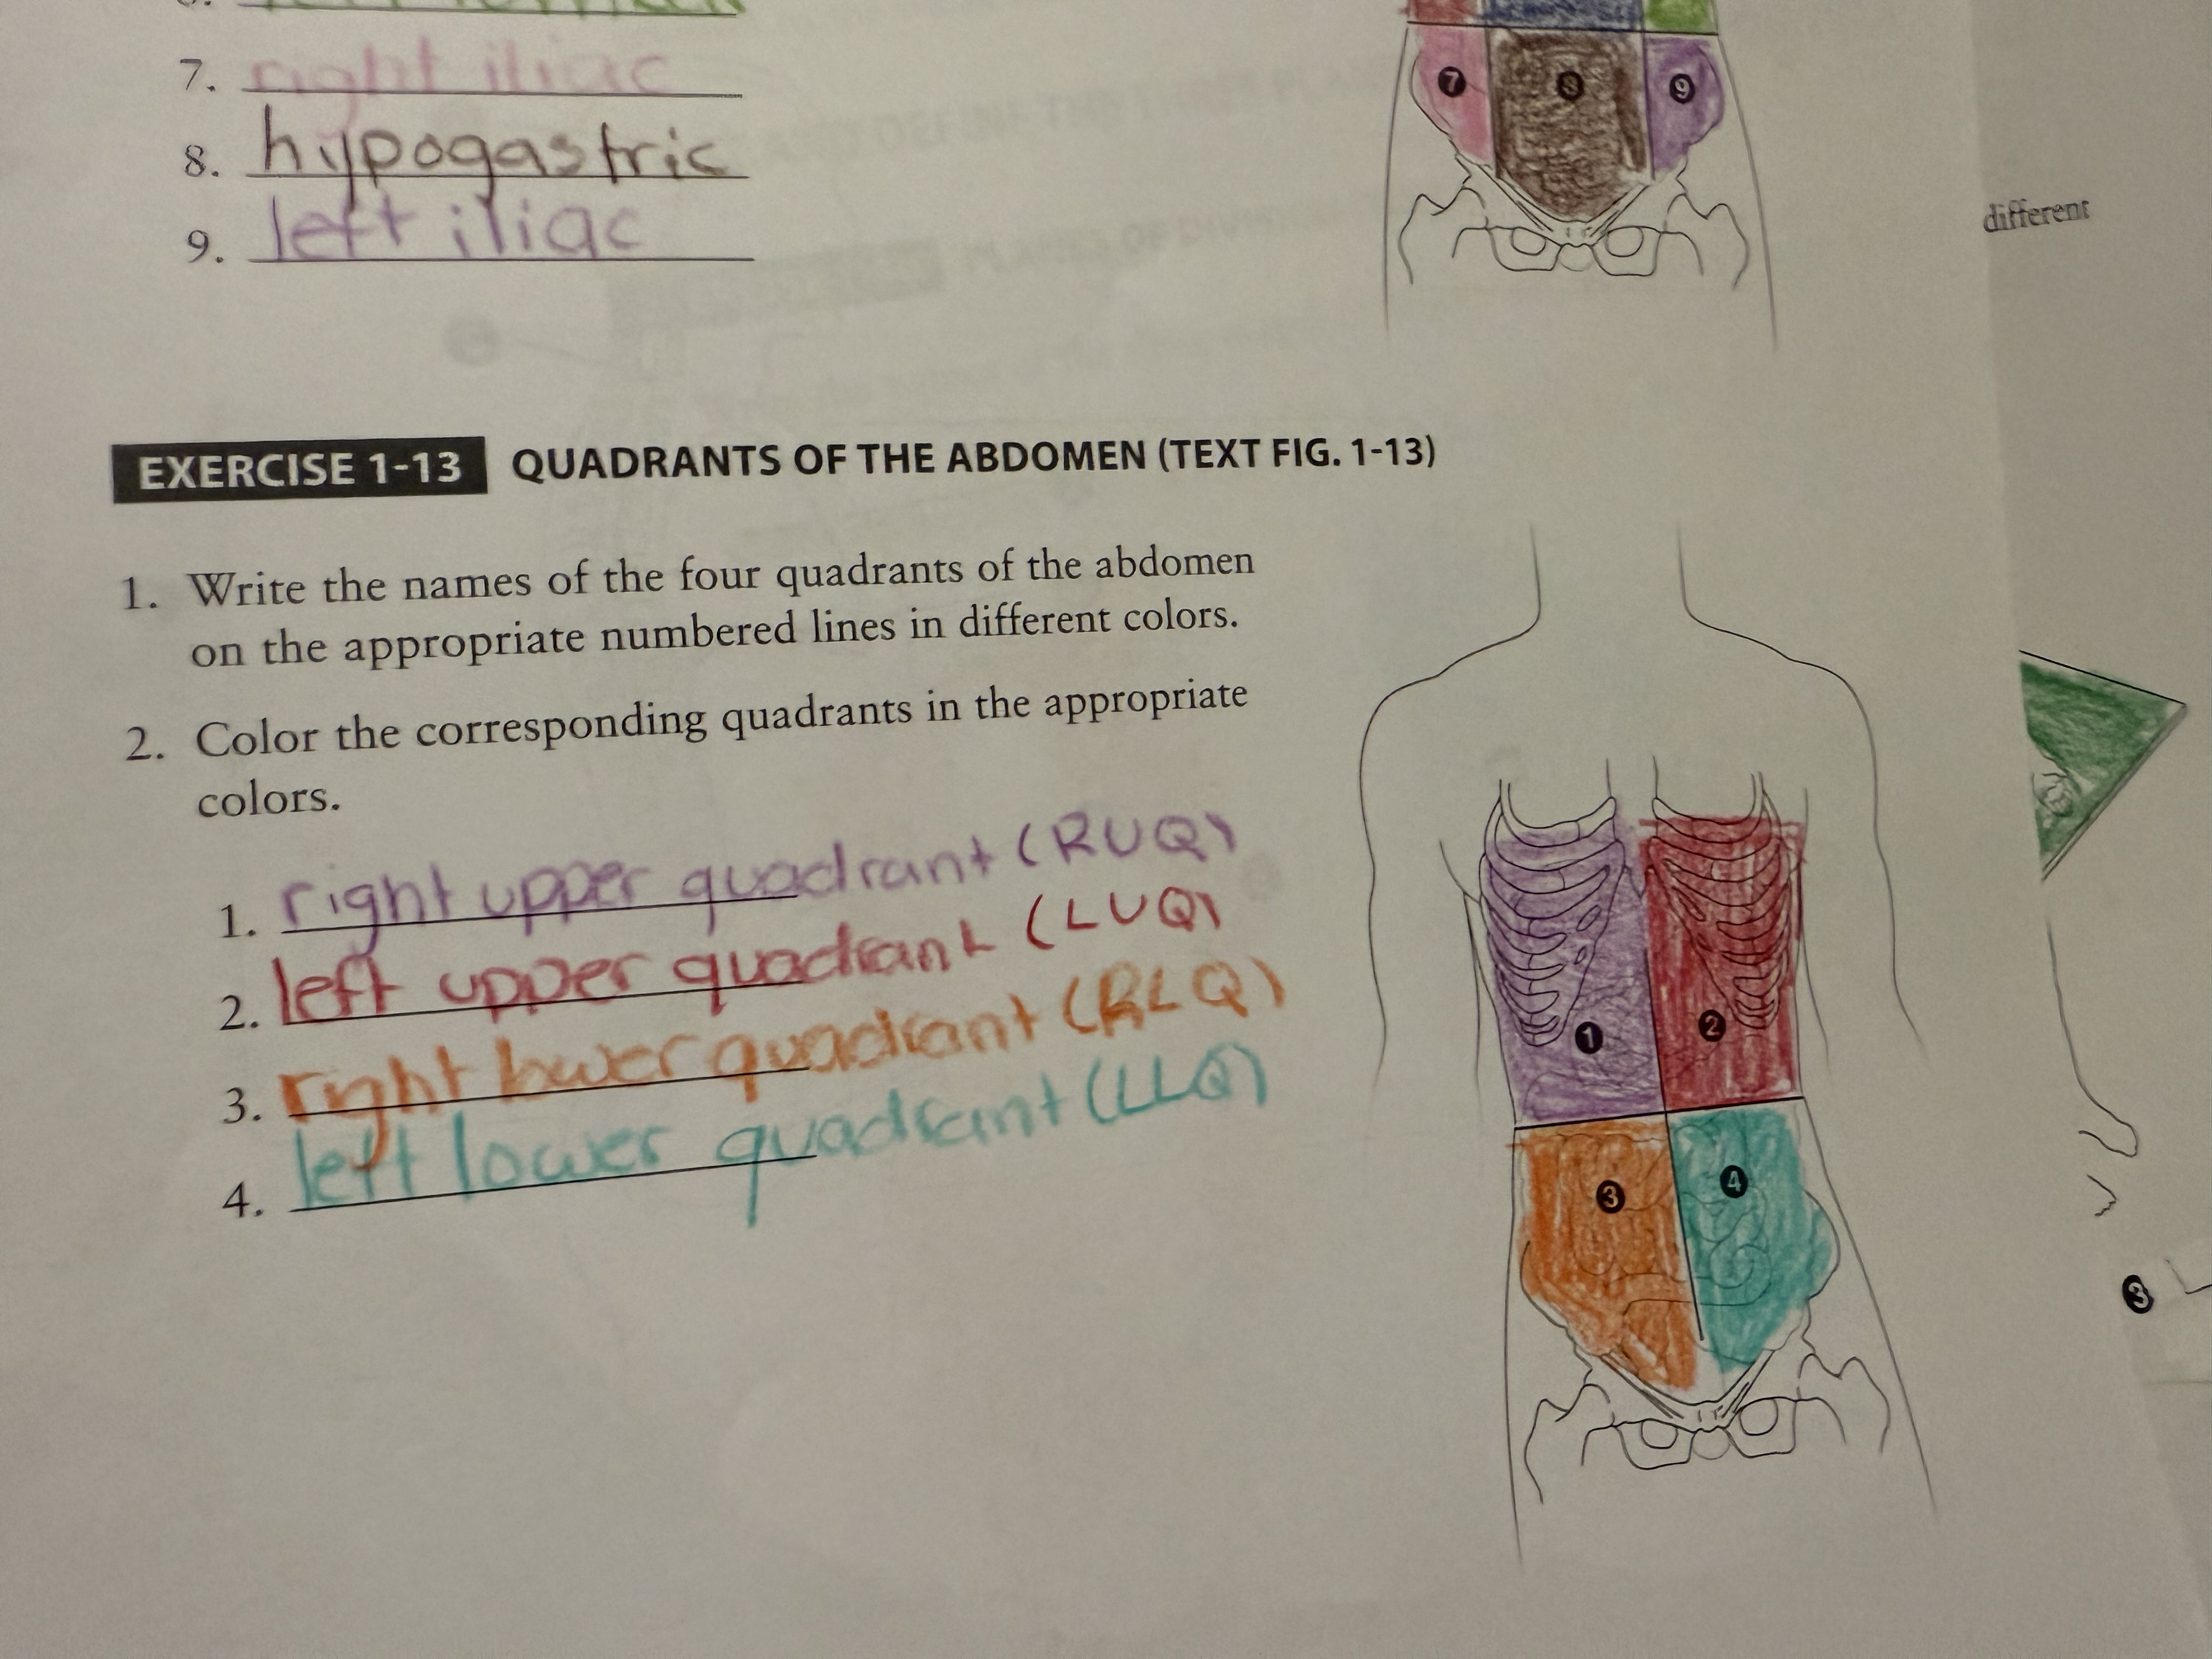 7. right iliac
7 8 9
8. hypogastric
9. left iliac
different
EXERCISE 1-13 QUADRANTS OF THE ABDOMEN (TEXT FIG. 1-13)
1. Write the names of the four quadrants of the abdomen
on the appropriate numbered lines in different colors.
2. Color the corresponding quadrants in the appropriate
colors.
1. right upper quadrant (RUQ)
2. left upper quadrant (LUQ)
3. right lower quadrant (RLQ)
4. left lower quadrant (LLQ)
1 2
3 4
3